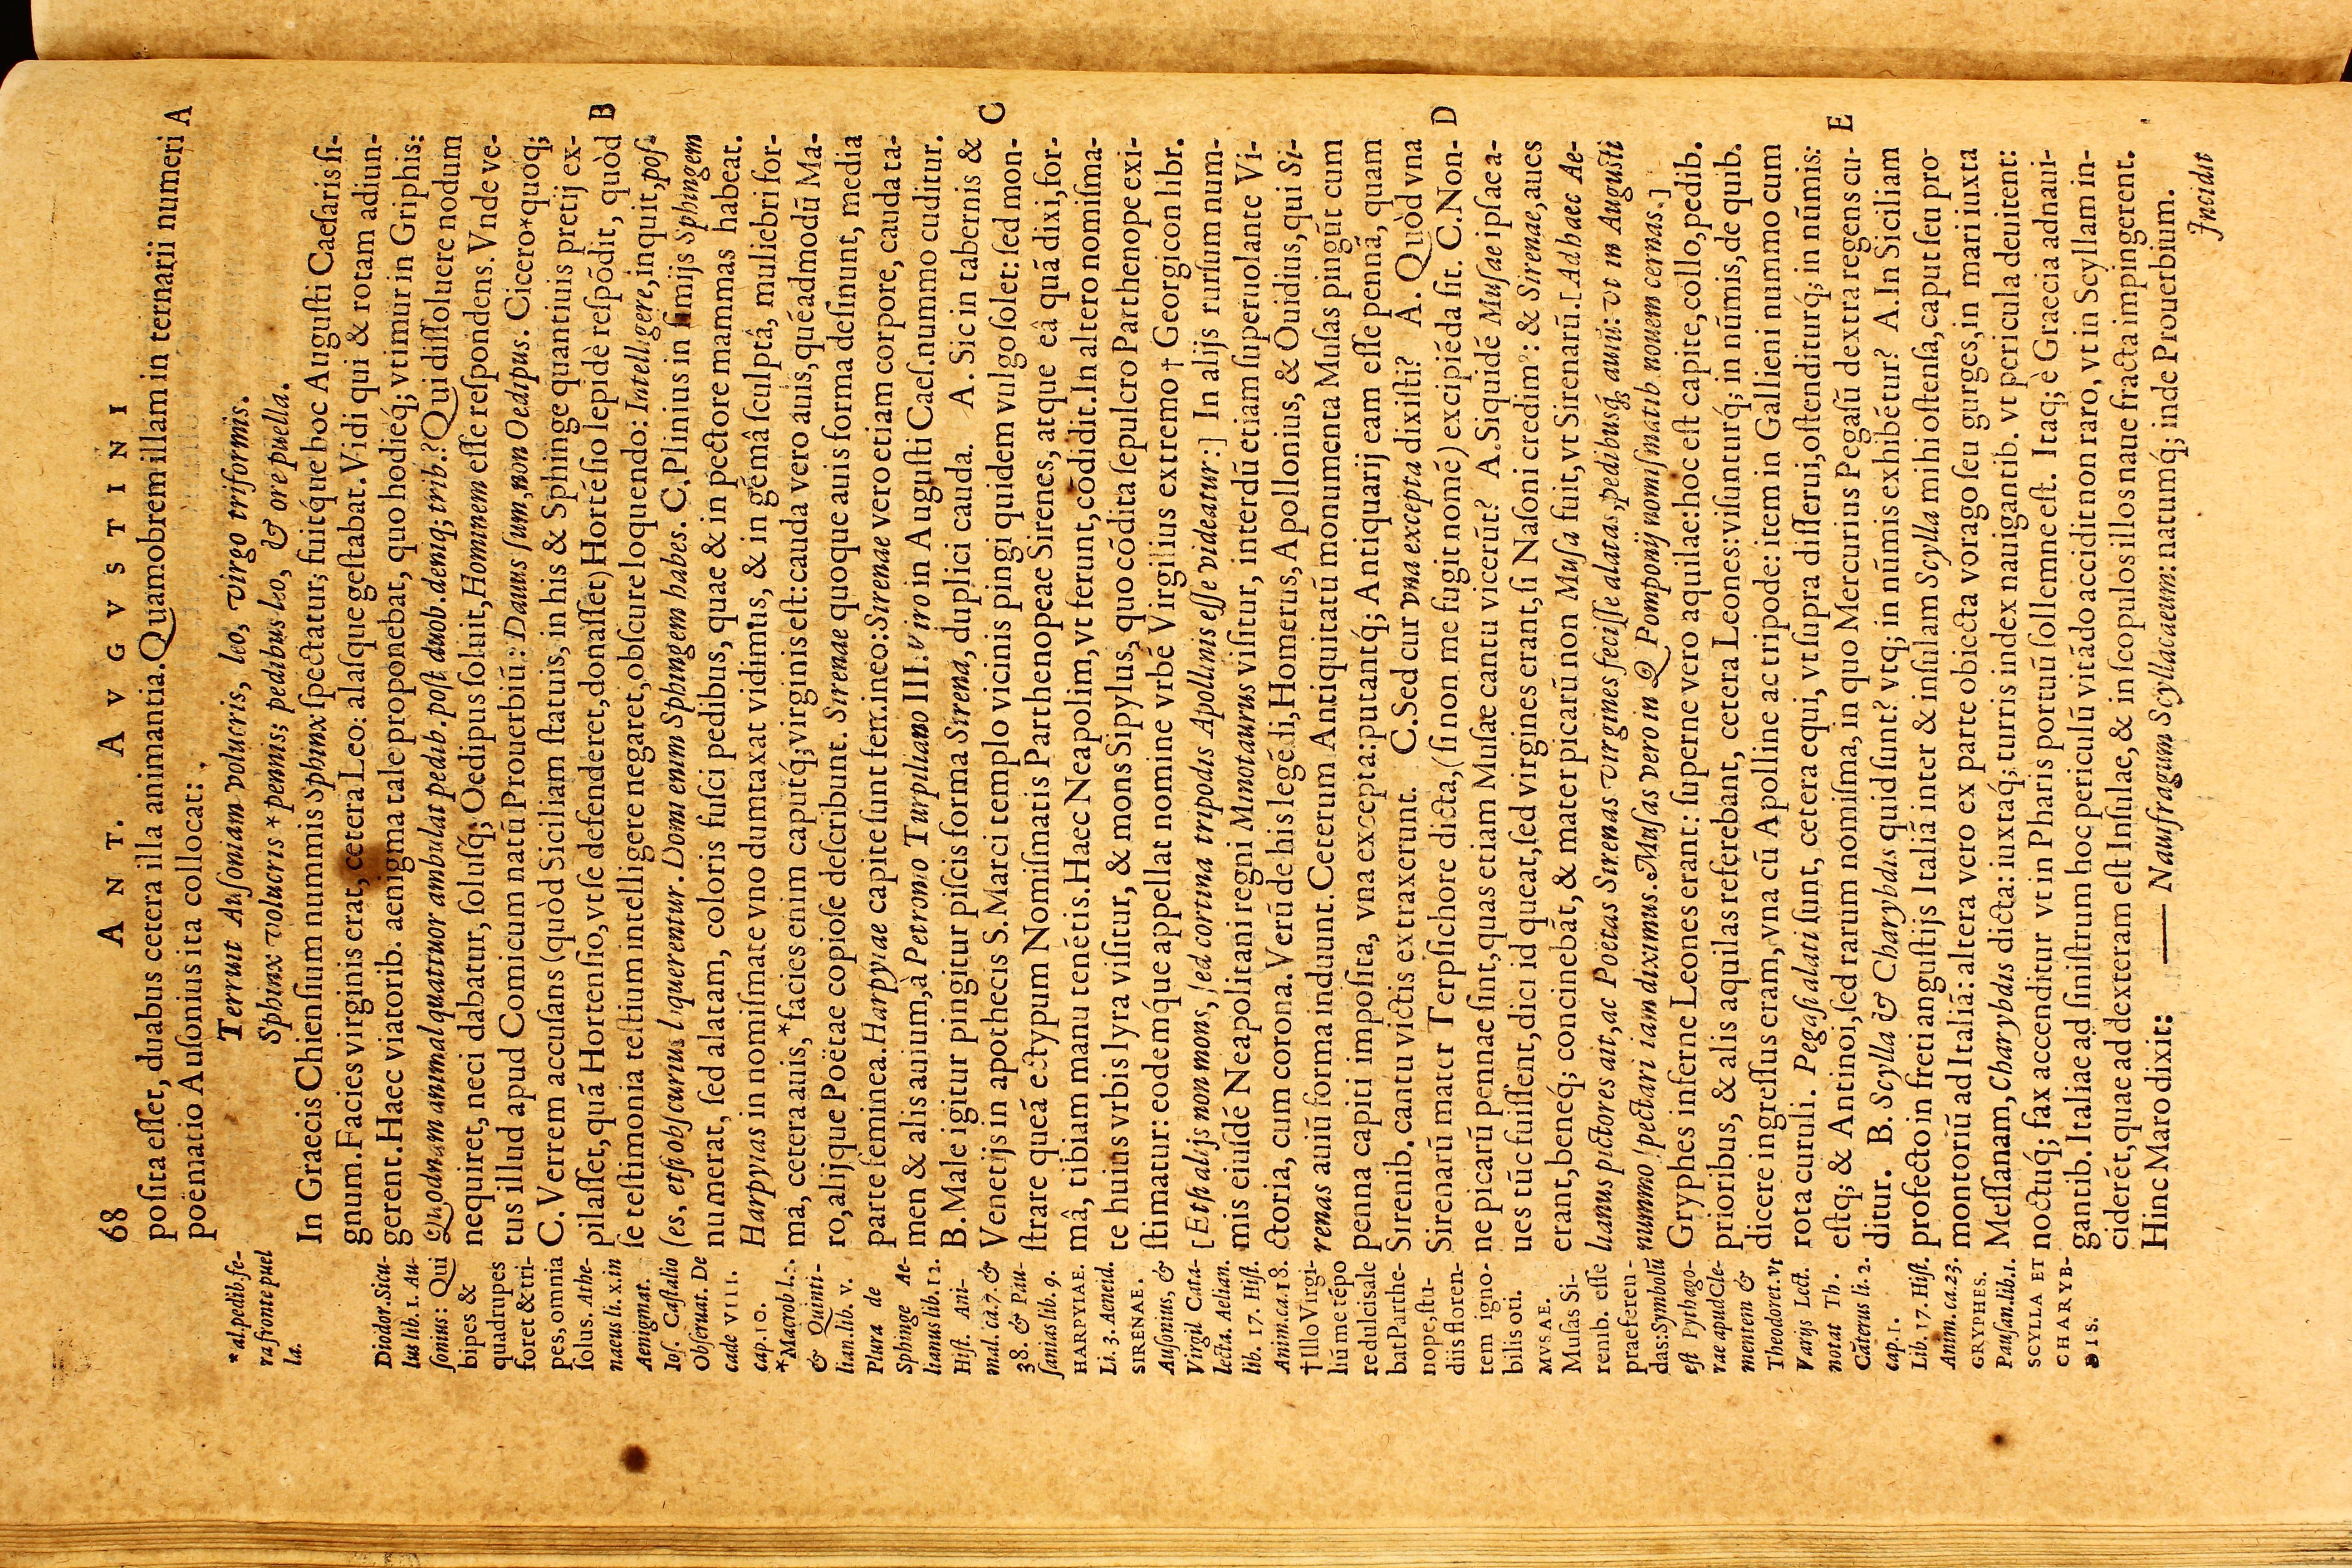 68
ANT. AVGVSTINI
poſita eſſet, duabus cetera illa animantia. Quamobrem illam in ternarii numeri A
poënatio Auſonius ita collocat:
Terruit Auſoniam volucris, leo, virgo triformis.
Sphinx volucris * pennis; pedibus leo, & ore puella.
In Graecis Chienſium nummis Sphinx ſpectatur; fuitq́ue hoc Auguſti Caeſaris ſi-
gnum. Facies virginis erat, cetera Leo: alaſque geſtabat. Vidi qui & rotam adiun-
gerent. Haec viatorib. aenigma tale proponebat, quo hodieq́; vtimur in Griphis:
Quodnam animal quatuor ambulat pedib. post duob. deniq; trib.? Qui diſſoluere nodum
nequiret, neci dabatur, ſoluſq́; Oedipus ſoluit, Hominem eſſe reſpondens. Vnde ve-
tus illud apud Comicum natũ Prouerbiũ: Dauus ſum, non Oedipus. Cicero * quoq;
C. Verrem accuſans (quòd Siciliam ſtatuis, in his & Sphinge quantiuis pretij ex-
pilaſſet, quã Hortenſio, vt ſe defenderet, donaſſet) Hortẽſio lepidè reſpõdit, quòd B
ſe teſtimonia teſtium intelligere negaret, obſcure loquendo: Intelligere, inquit, poſ-
ſes, etſi obſcurius loquerentur. Domi enim Sphingem habes. C. Plinius in ſimijs Sphingem
numerat, ſed alatam, coloris fuſci pedibus, quae & in pectore mammas habeat.
Harpyias in nomiſmate vno dumtaxat vidimus, & in gẽmâ ſculptâ, muliebri for-
ma, cetera auis, * facies enim caputq́; virginis eſt: cauda vero auis, quẽadmodũ Ma-
ro, alijque Poëtae copioſe deſcribunt. Sirenae quoque auis forma deſinunt, media
parte feminea. Harpyiae capite ſunt femineo: Sirenae vero etiam corpore, cauda ta-
men & alis auium, à Petronio Turpiliano III. viro in Auguſti Caeſ. nummo cuditur.
B. Male igitur pingitur piſcis forma Sirena, duplici cauda. A. Sic in tabernis & C
Venetijs in apothecis S. Marci templo vicinis pingi quidem vulgo ſolet: ſed mon-
ſtrare queã ectypum Nomiſmatis Parthenopeae Sirenes, atque eâ quã dixi, for-
mâ, tibiam manu tenẽtis. Haec Neapolim, vt ferunt, cõdidit. In altero nomiſma-
te huius vrbis lyra viſitur, & mons Sipylus, quo cõdita ſepulcro Parthenope exi-
ſtimatur: eodemq́ue appellat nomine vrbẽ Virgilius extremo † Georgicon libr.
[Etſi alijs non mons, ſed cortina tripodis Apollinis eſſe videatur:] In alijs rurſum num-
mis eiuſdẽ Neapolitani regni Minotaurus viſitur, interdũ etiam ſuperuolante Vi-
ctoria, cum corona. Verũ de his legẽdi, Homerus, Apollonius, & Ouidius, qui Si-
renas auiũ forma induunt. Ceterum Antiquitatũ monumenta Muſas pingũt cum
penna capiti impoſita, vna excepta: putantq́; Antiquarij eam eſſe pennã, quam
Sirenib. cantu victis extraxerunt. C. Sed cur vna excepta dixiſti? A. Quòd vna
Sirenarũ mater Terpſichore dicta, (ſi non me fugit nomẽ) excipiẽda ſit. C. Non- D
ne picarũ pennae ſint, quas etiam Muſae cantu vicerũt? A. Siquidẽ Muſae ipſae a-
ues tũc fuiſſent, dici id queat, ſed virgines erant, ſi Naſoni credimꝰ: & Sirenae, aues
erant, beneq́; concinebãt, & mater picarũ non Muſa fuit, vt Sirenarũ. [Ad haec Ae-
lianus pictores ait, ac Poëtas Sirenas virgines feciſſe alatas, pedibusq́; auiũ: vt in Auguſti
nummo ſpectari iam diximus. Muſas vero in Q Pomponij nomiſmatib nouem cernas.]
Gryphes inferne Leones erant: ſuperne vero aquilae: hoc eſt capite, collo, pedib.
prioribus, & alis aquilas referebant, cetera Leones: viſunturq́; in nũmis, de quib.
dicere ingreſſus eram, vna cũ Apolline ac tripode: item in Gallieni nummo cum
rota curuli. Pegaſi alati ſunt, cetera equi, vt ſupra diſſerui, oſtenditurq́; in nũmis:
eſtq; & Antinoi, ſed rarum nomiſma, in quo Mercurius Pegaſũ dextra regens cu- E
ditur. B. Scylla & Charybdas quid ſunt? vtq; in nũmis exhibẽtur? A. In Siciliam
profecto in freti anguſtijs Italiã inter & inſulam Scylla mihi oſtenſa, caput ſeu pro-
montoriũ ad Italiã: altera vero ex parte obiecta vorago ſeu gurges, in mari iuxta
Meſſanam, Charybdas dicta: iuxtaq́; turris index nauigantib. vt pericula deuitent:
noctuq́; fax accenditur vt in Pharis portuũ ſollemne eſt. Itaq; è Graecia adnaui-
gantib. Italiae ad ſiniſtrum hoc periculũ vitãdo accidit non raro, vt in Scyllam in-
ciderẽt, quae ad dexteram eſt Inſulae, & in ſcopulos illos naue fracta impingerent.
Hinc Maro dixit: —— Naufragum Scyllaceum: natumq́; inde Prouerbium.
Incidit
* al. pedib fe-
ra fronte puel
la.
Diodor. Sicu-
lus lib. 1. Au-
ſonius: Qui
bipes &
quadrupes
foret & tri-
pes, omnia
ſolus. Athe-
naeus li. x. in
Aenigmat.
Ioſ. Caſtalio
Obſeruat. De
cade VIII.
cap. 10.
* Macrob l.
& Quinti-
lian. lib. v.
Plura de
Sphinge Ae-
lianus lib. 12.
Hiſt. Ani-
mal. cã. 7. &
38. & Pau-
ſanias lib. 9.
HARPYIAE.
Li. 3. Aeneid.
SIRENAE.
Auſonius, &
Virgil Cata-
lecta. Aelian.
lib. 17. Hiſt.
Anim. ca. 18.
† Illo Virgi-
liũ me tẽpo
re dulcis ale
bat Parthe-
nope, ſtu-
diis floren-
tem igno-
bilis oti.
MVSAE.
Muſas Si-
renib. eſſe
praeferen-
das: Symbolũ
eſt Pythago-
rae apud Cle-
mentem &
Theodoret. vt
Varijs Lect.
notat Th.
Cãterus li. 2.
cap. 1.
Lib. 17. Hiſt.
Anim. ca. 23.
GRYPHES.
Pauſan. lib. 1.
SCYLLA ET
CHARYB-
DIS.